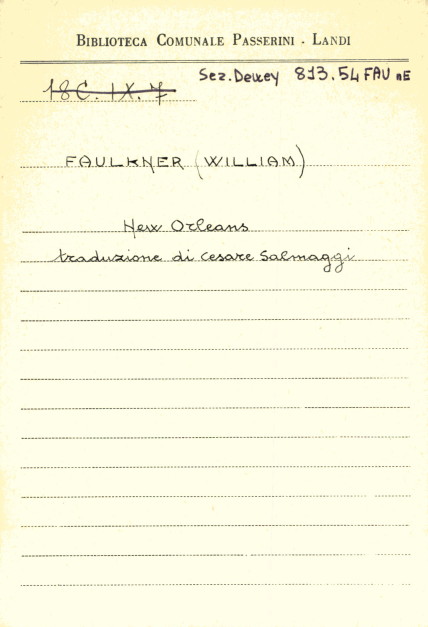 BIBLIOTECA COMUNALE PASSERINI - LANDI
Sez. Dewey 813.54 FAU nE
18C. IX. 7
FAULKNER (WILLIAM)
New Orleans
traduzione di Cesare Salmaggi